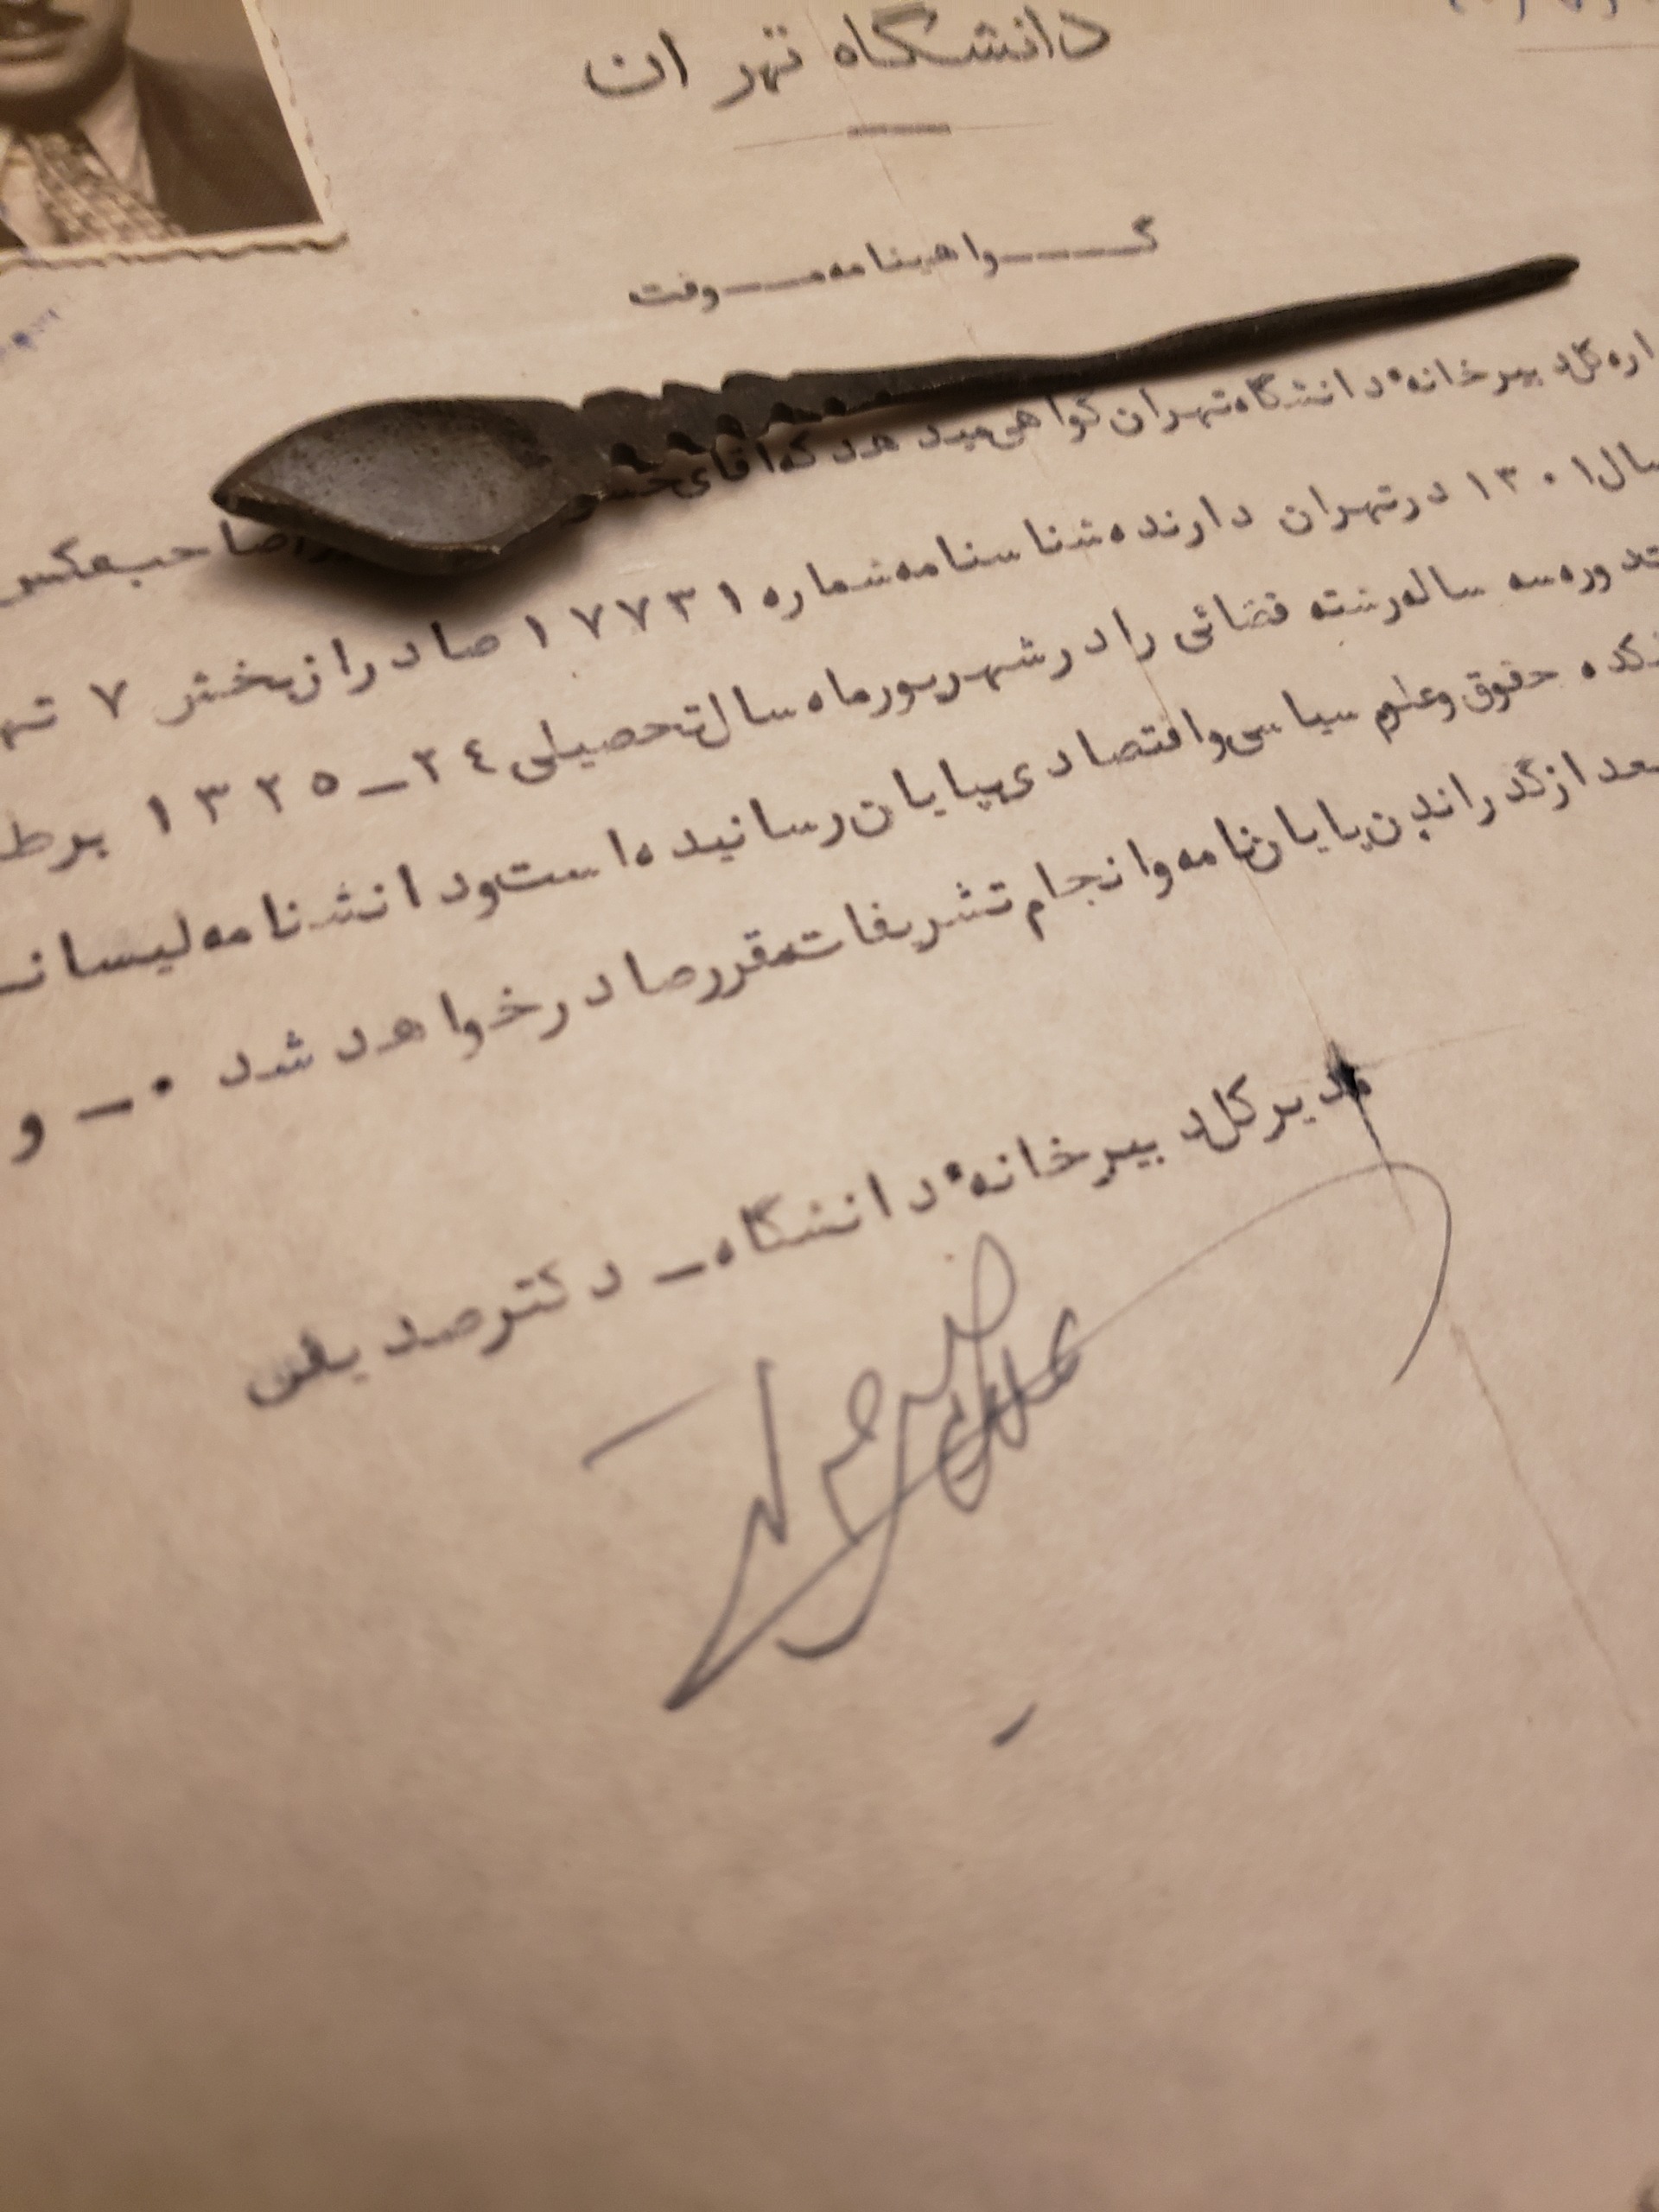 دانشگاه تهران
گـــواهینامه مــوقت
اره کل دبیرخانهٔ دانشگاه تهران گواهی میدهد که آقای صاحب عکس
سال ۱۳۰۱ در تهران دارنده شناسنامه شماره ۱۷۷۳۱ صادر از بخش ۷ تهـ
دوره سه ساله رشته قضائی را در شهریور ماه سال تحصیلی ۲۴ـ۱۳۲۵ بر ط
کده حقوق و علوم سیاسی و اقتصادی بپایان رسانیده است و دانشنامه لیسانـ
عد از گذراندن پایان نامه و انجام تشریفات مقرر صادر خواهد شد ۰ ـ و
مدیر کل دبیرخانهٔ دانشگاه ـ دکتر صدیقی